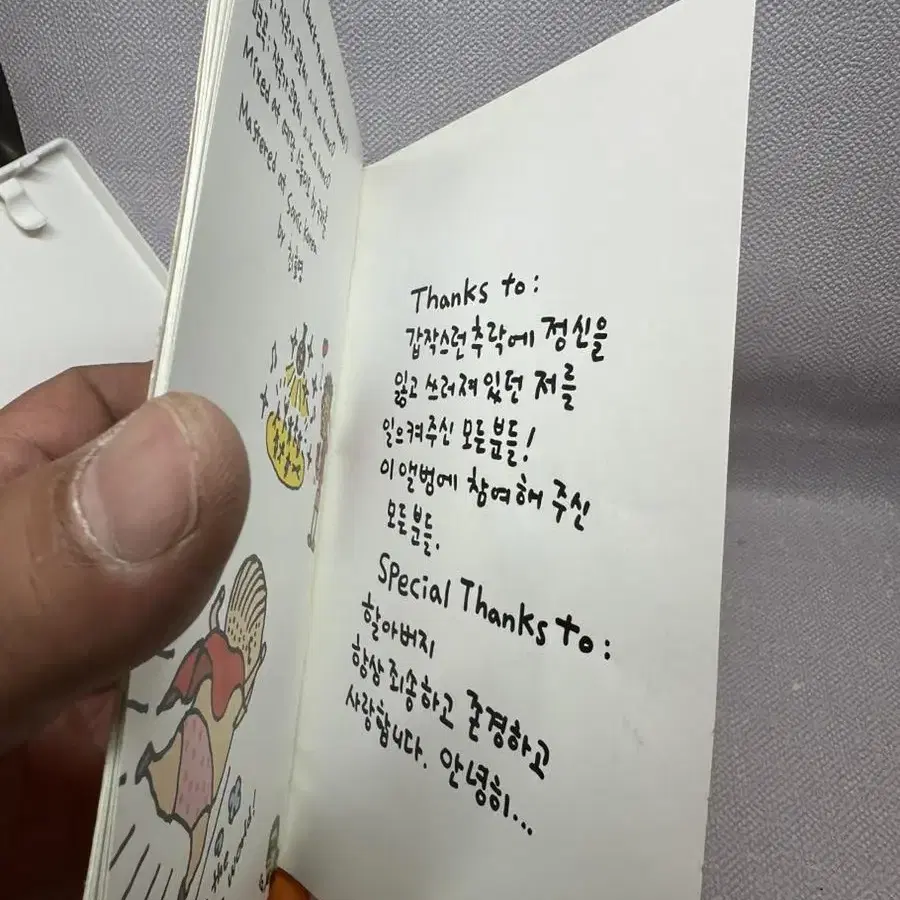 Mixed at
Mastered at Sonic Korea
by
Thanks to:
갑작스런 추락에 정신을
잃고 쓰러져 있던 저를
일으켜주신 모든분들!
이 앨범에 참여해 주신
모든분들.
Special Thanks to:
할아버지
항상 죄송하고 존경하고
사랑합니다. 안녕히...
the